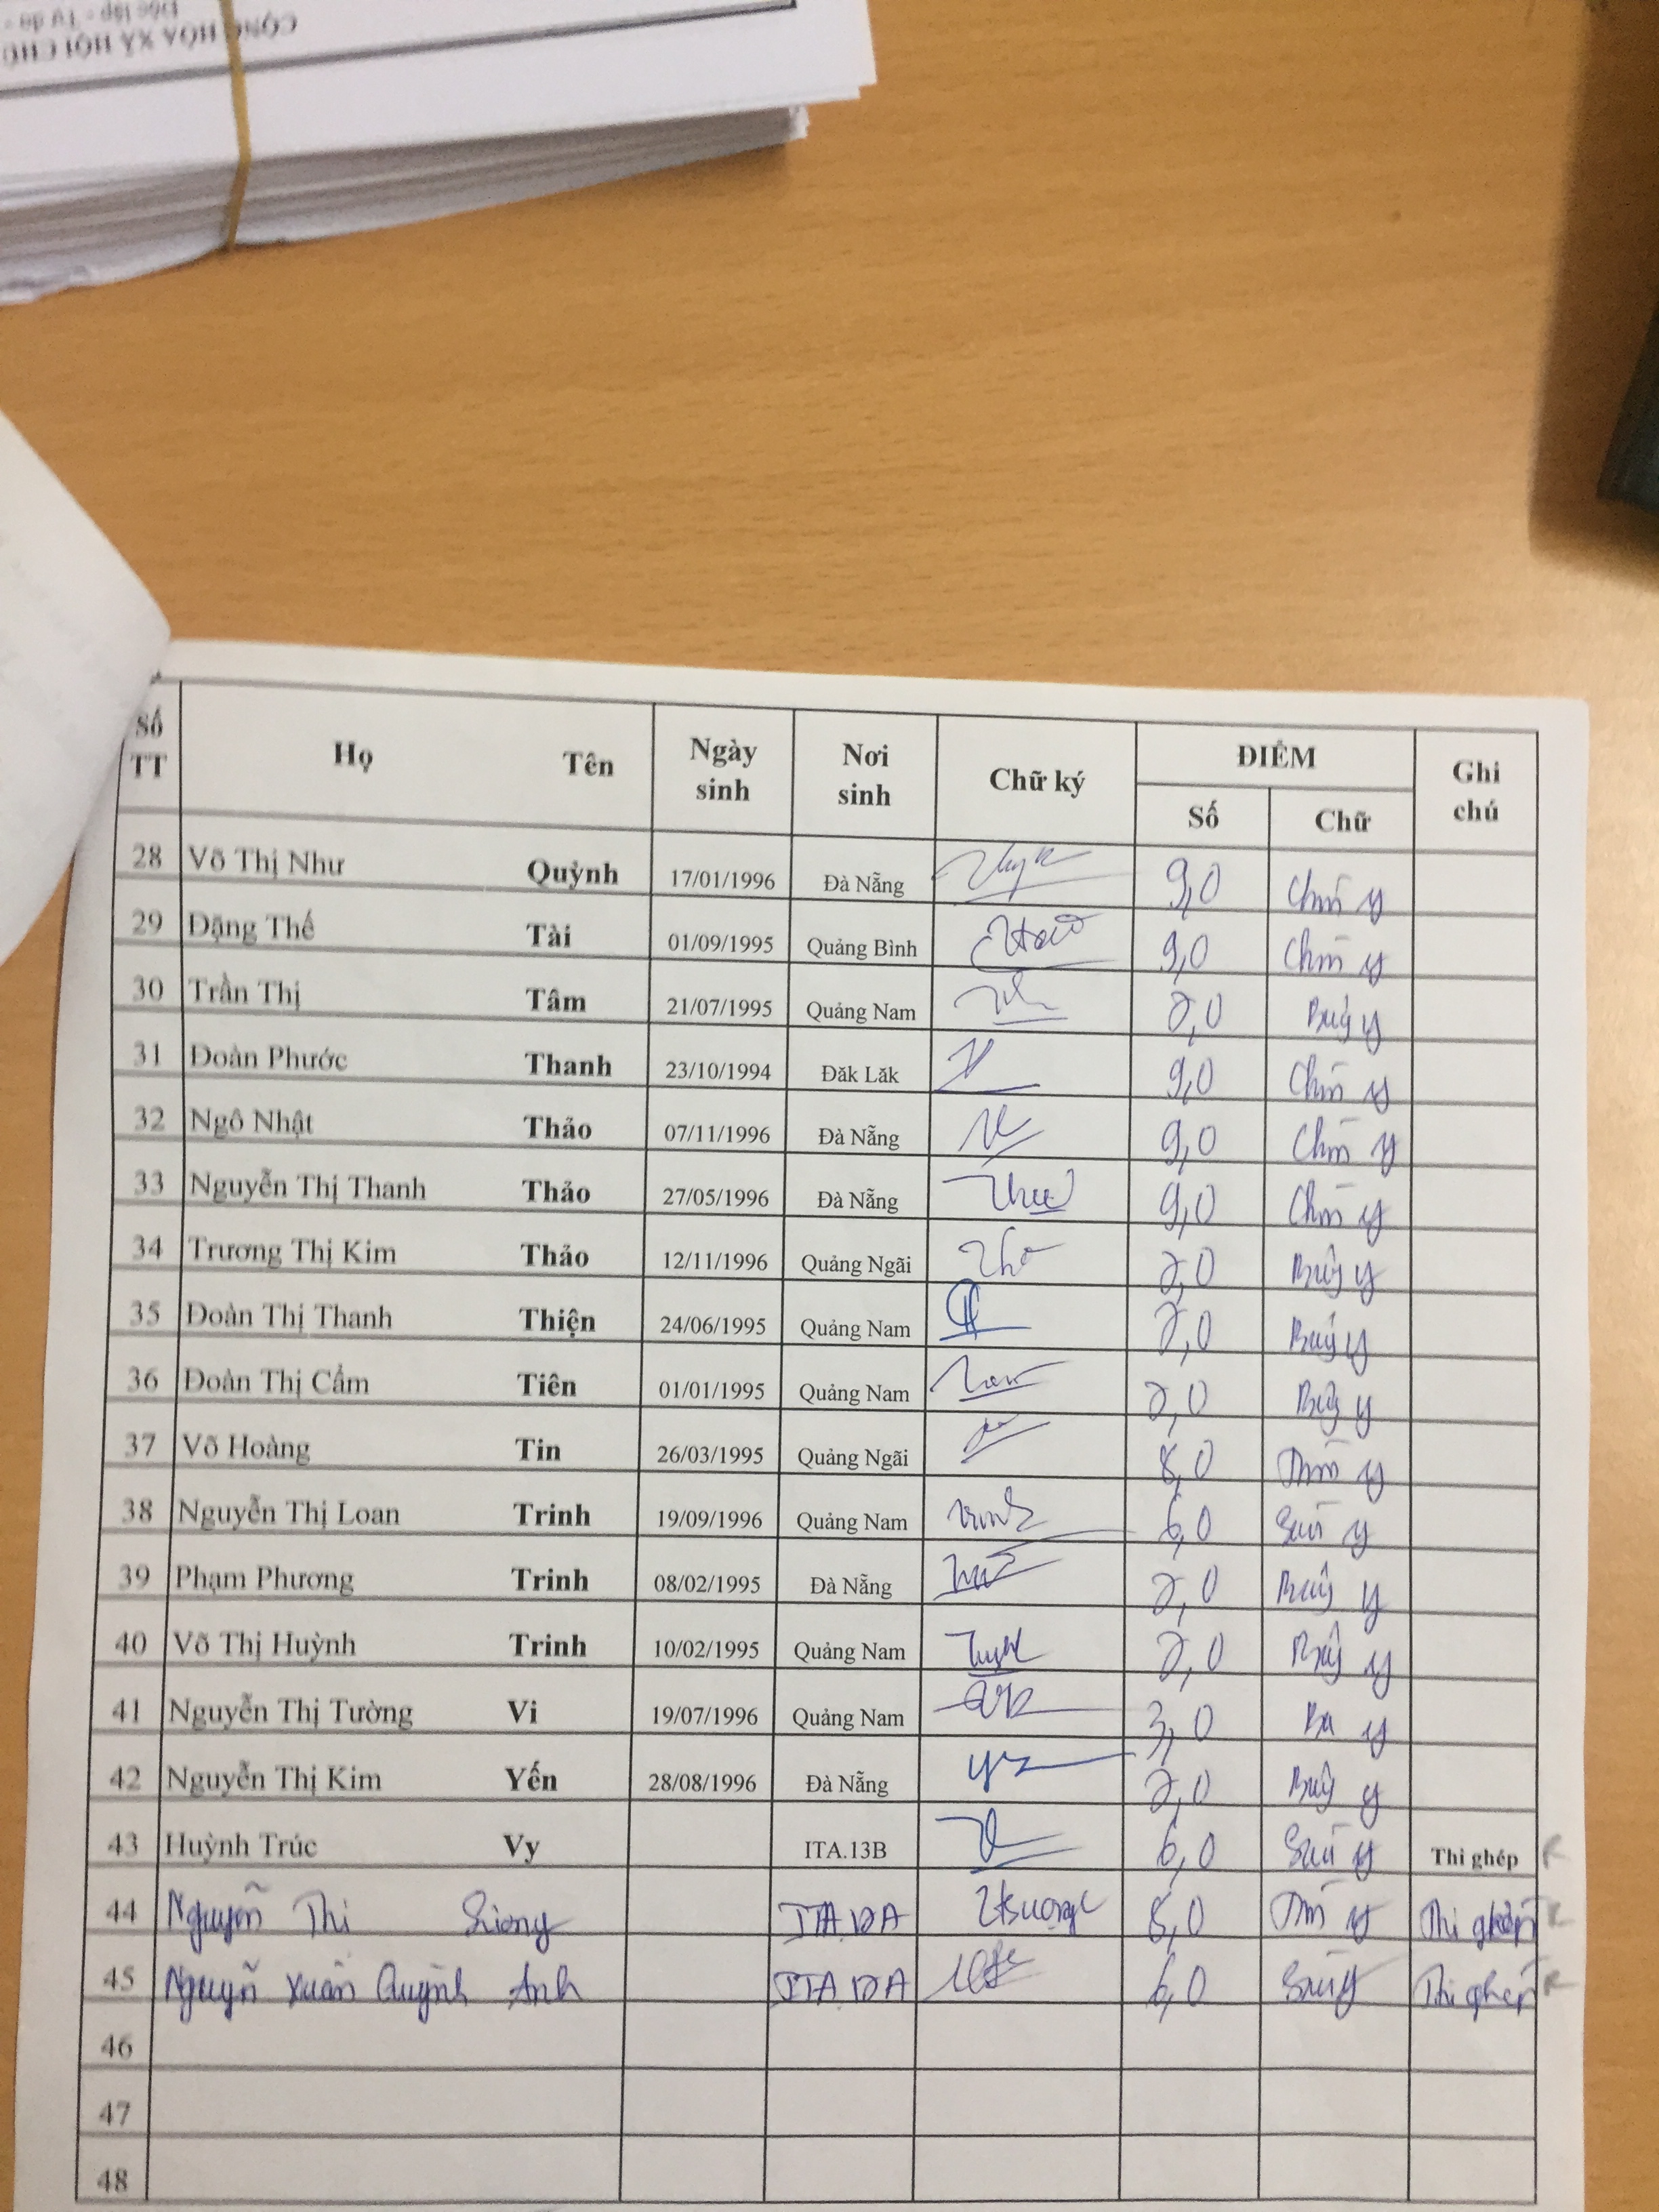 CỘNG HÒA XÃ HỘI CHỦ
Độc lập - Tự do -
Số TT Họ Tên Ngày sinh Nơi sinh Chữ ký ĐIỂM Ghi chú
Số Chữ
28 Võ Thị Như Quỳnh 17/01/1996 Đà Nẵng 9,0 Chín y
29 Đặng Thế Tài 01/09/1995 Quảng Bình 9,0 Chín y
30 Trần Thị Tâm 21/07/1995 Quảng Nam 7,0 Bảy y
31 Đoàn Phước Thanh 23/10/1994 Đăk Lăk 9,0 Chín y
32 Ngô Nhật Thảo 07/11/1996 Đà Nẵng 9,0 Chín y
33 Nguyễn Thị Thanh Thảo 27/05/1996 Đà Nẵng 9,0 Chín y
34 Trương Thị Kim Thảo 12/11/1996 Quảng Ngãi 7,0 Bảy y
35 Đoàn Thị Thanh Thiện 24/06/1995 Quảng Nam 7,0 Bảy y
36 Đoàn Thị Cẩm Tiên 01/01/1995 Quảng Nam 7,0 Bảy y
37 Võ Hoàng Tin 26/03/1995 Quảng Ngãi 8,0 Tám y
38 Nguyễn Thị Loan Trinh 19/09/1996 Quảng Nam 6,0 Sáu y
39 Phạm Phương Trinh 08/02/1995 Đà Nẵng 7,0 Bảy y
40 Võ Thị Huỳnh Trinh 10/02/1995 Quảng Nam 7,0 Bảy y
41 Nguyễn Thị Tường Vi 19/07/1996 Quảng Nam 3,0 Ba y
42 Nguyễn Thị Kim Yến 28/08/1996 Đà Nẵng 7,0 Bảy y
43 Huỳnh Trúc Vy ITA.13B 6,0 Sáu y Thi ghép R
44 Nguyễn Thị 8,0 Tám y Thi ghép R
45 Nguyễn Xuân Quỳnh Anh 6,0 Sáu y Thi ghép R
46
47
48